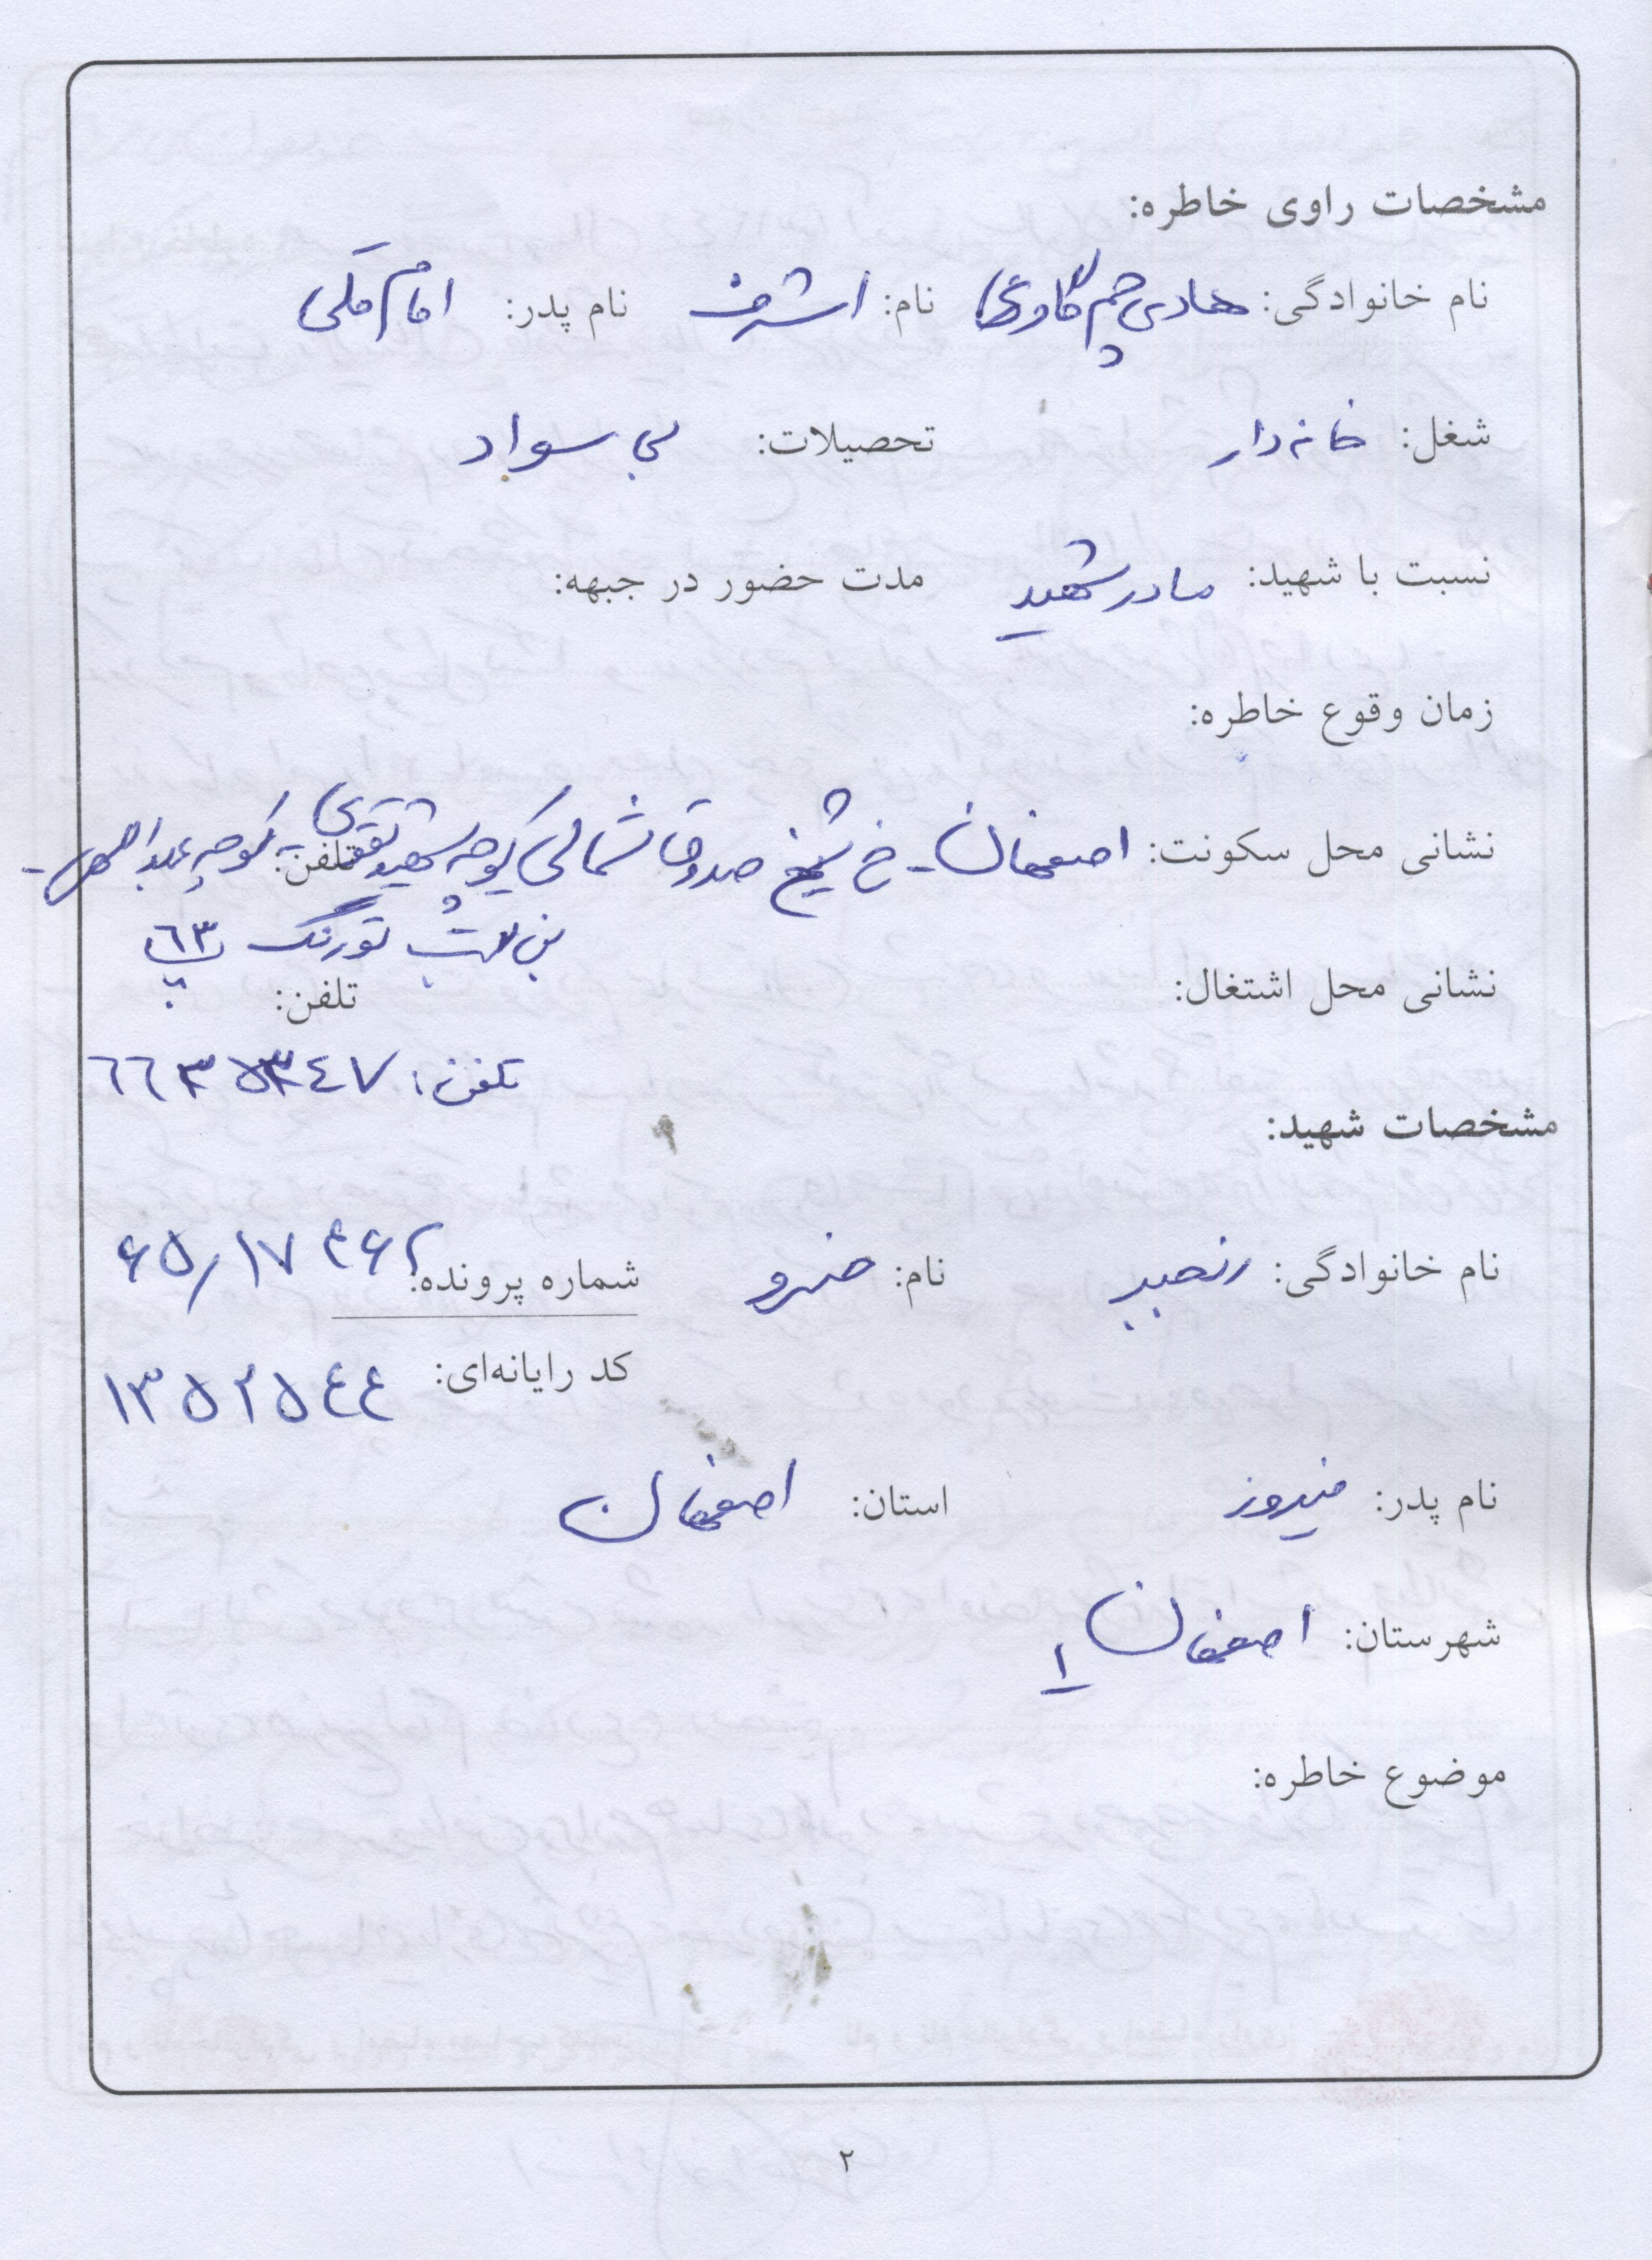 مشخصات راوی خاطره:
نام خانوادگی: هادی چم گاوی نام: اشرف نام پدر: امام قلی
شغل: خانه دار تحصیلات: بی سواد
نسبت با شهید: مادر شهید مدت حضور در جبهه:
زمان وقوع خاطره:
نشانی محل سکونت: اصفهان - خ شیخ صدوق شمالی کوچه شهید تلفن: کوچه عبداللهی -
بن بست تورنگ پ ٦٣
نشانی محل اشتغال: تلفن:
تلفن: ٤٧
مشخصات شهید:
نام خانوادگی: رنجبر نام: خسرو شماره پرونده: ۶۵/۱۷۴۶۲
کد رایانه‌ای: ۱۳۵۲۵٤٤
نام پدر: فیروز استان: اصفهان
شهرستان: اصفهان ۱
موضوع خاطره:
۲